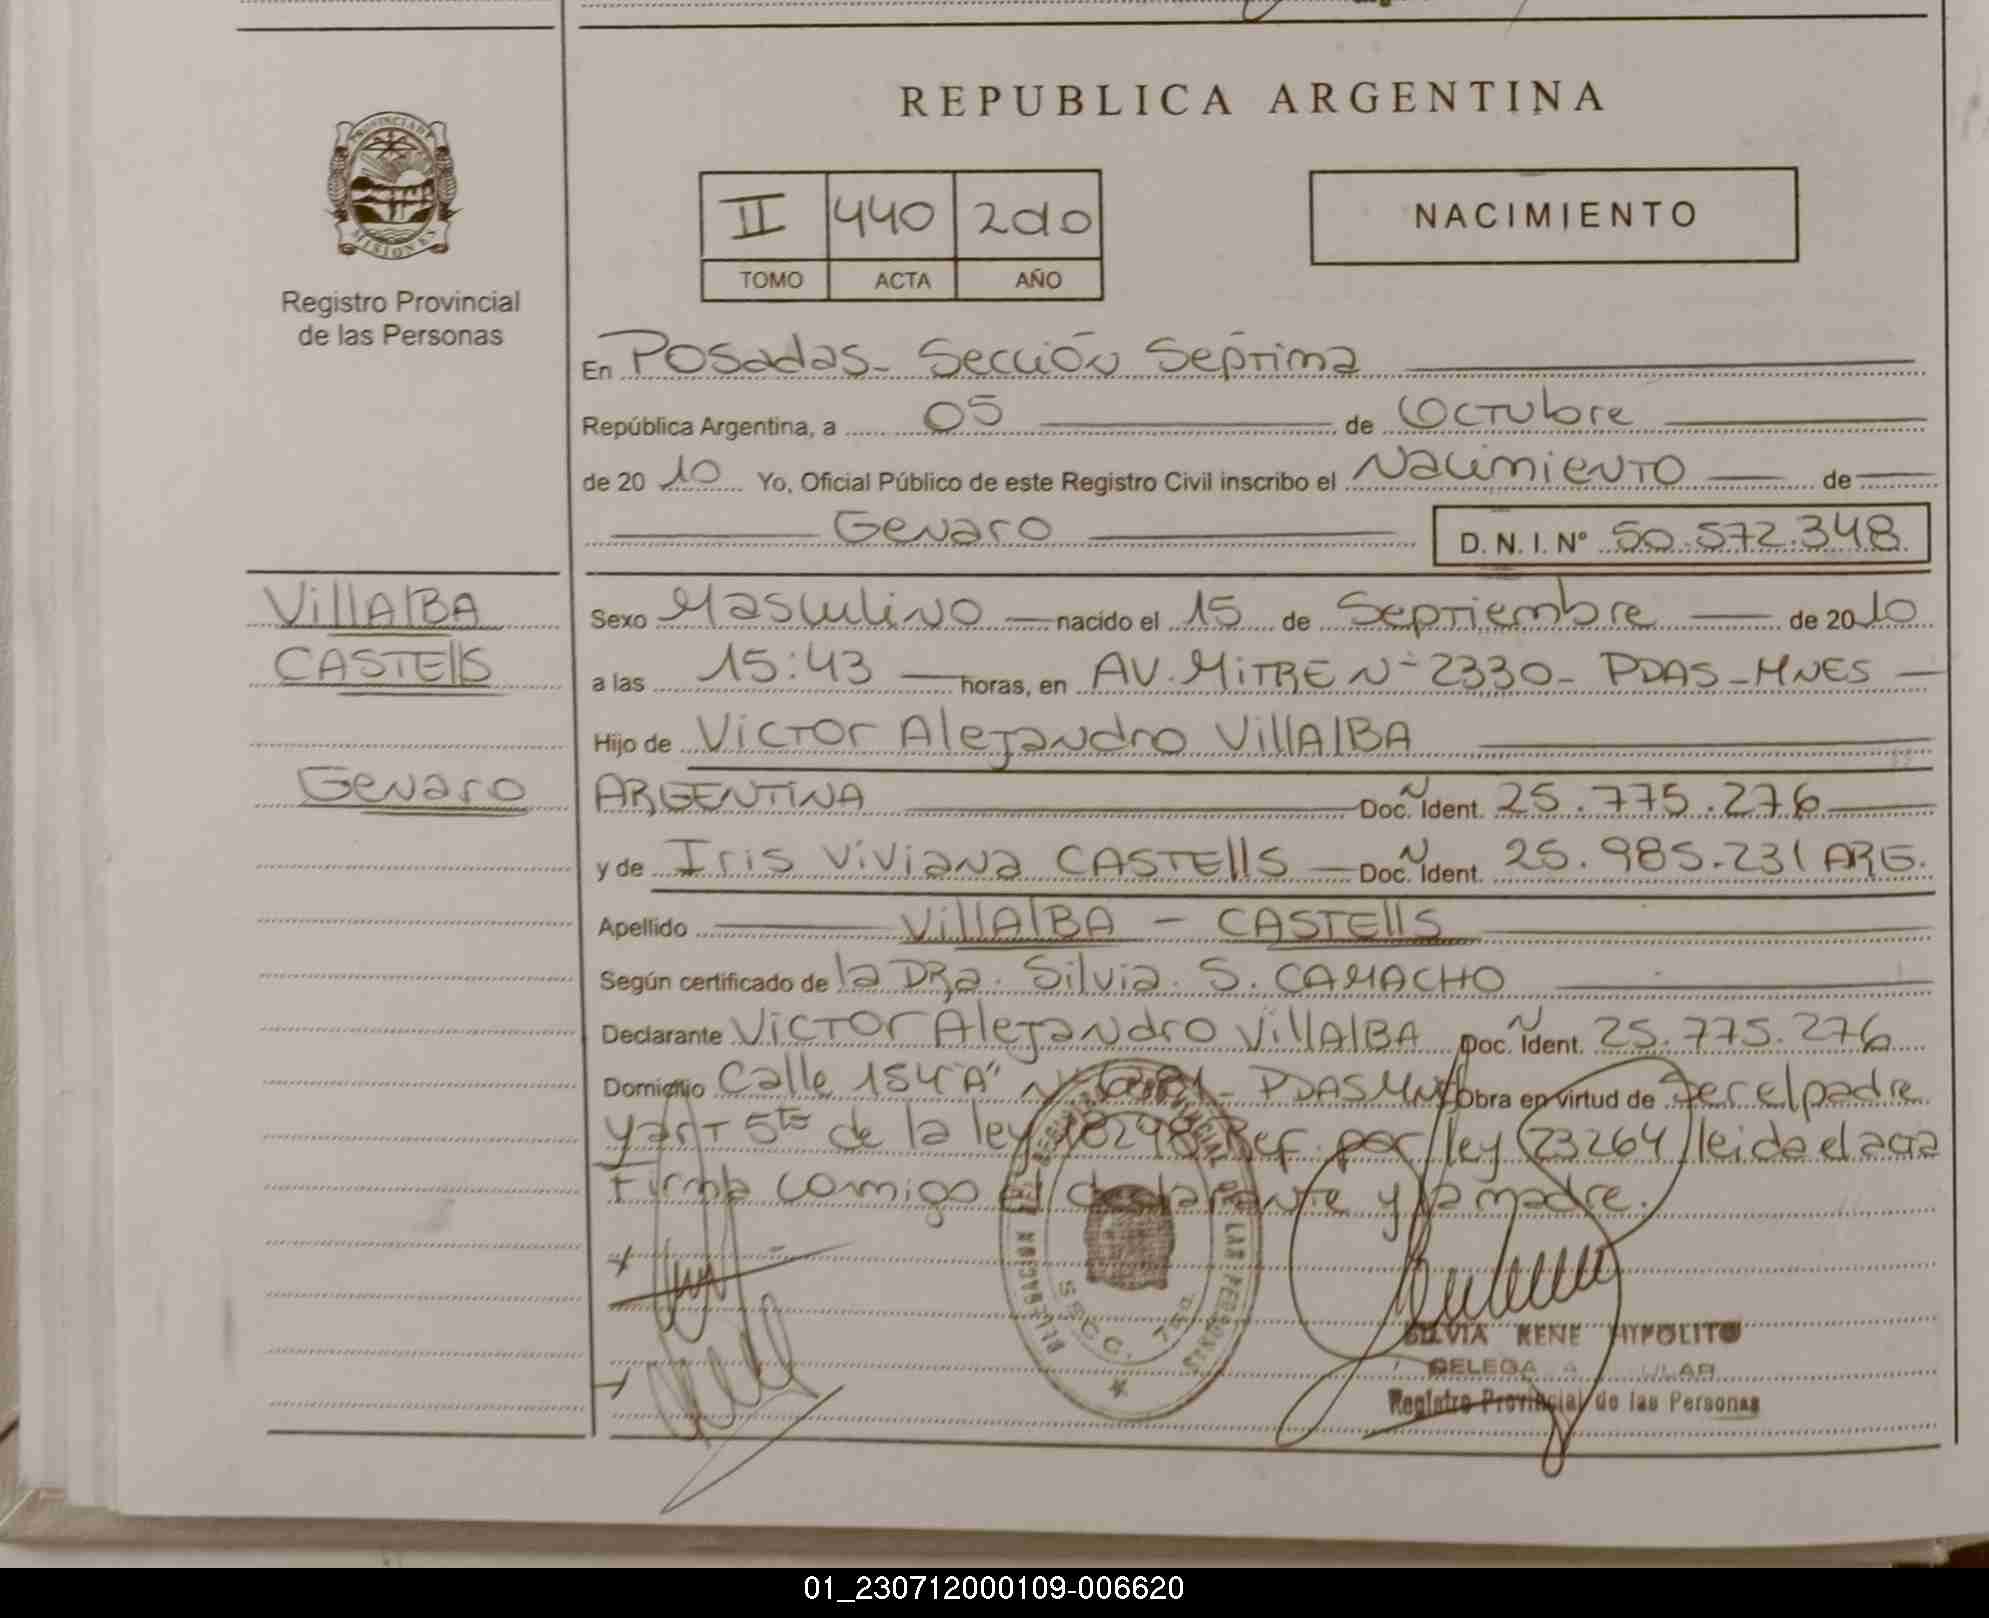 REPUBLICA ARGENTINA
PROVINCIA DE MISIONES
Registro Provincial
de las Personas
II 440 2do
TOMO ACTA AÑO
NACIMIENTO
En Posadas - Sección Séptima
República Argentina, a 05 de Octubre
de 20 10 Yo, Oficial Público de este Registro Civil inscribo el Nacimiento de
Genaro D. N. I. N° 50.572.348
VillAlBA
CASTEllS
Genaro
Sexo Masculino nacido el 15 de Septiembre de 2010
a las 15:43 horas, en AV. MiTRE N° 2330 - PDAS - MNES
Hijo de Victor Alejandro VillAlBA
ARGENTINA Doc. Ident. 25.775.276
y de Iris Viviana CASTEllS Doc. Ident. 25.985.231 ARG.
Apellido VillAlBA - CASTEllS
Según certificado de la DRa. Silvia. S. CAMACHO
Declarante Victor Alejandro VillAlBA Doc. Ident. 25.775.276
Domicilio Calle 154 "A" PDAS Obra en virtud de Ser el padre
y art 5to de la ley 18298 Ref. por ley 23264 leida el acta
Firma comigo el declarante y la madre.
REGISTRO PROVINCIAL DE LAS PERSONAS
SECC. 7ma.
SILVIA RENE HYPOLITO
Registro Provincial de las Personas
01_230712000109-006620